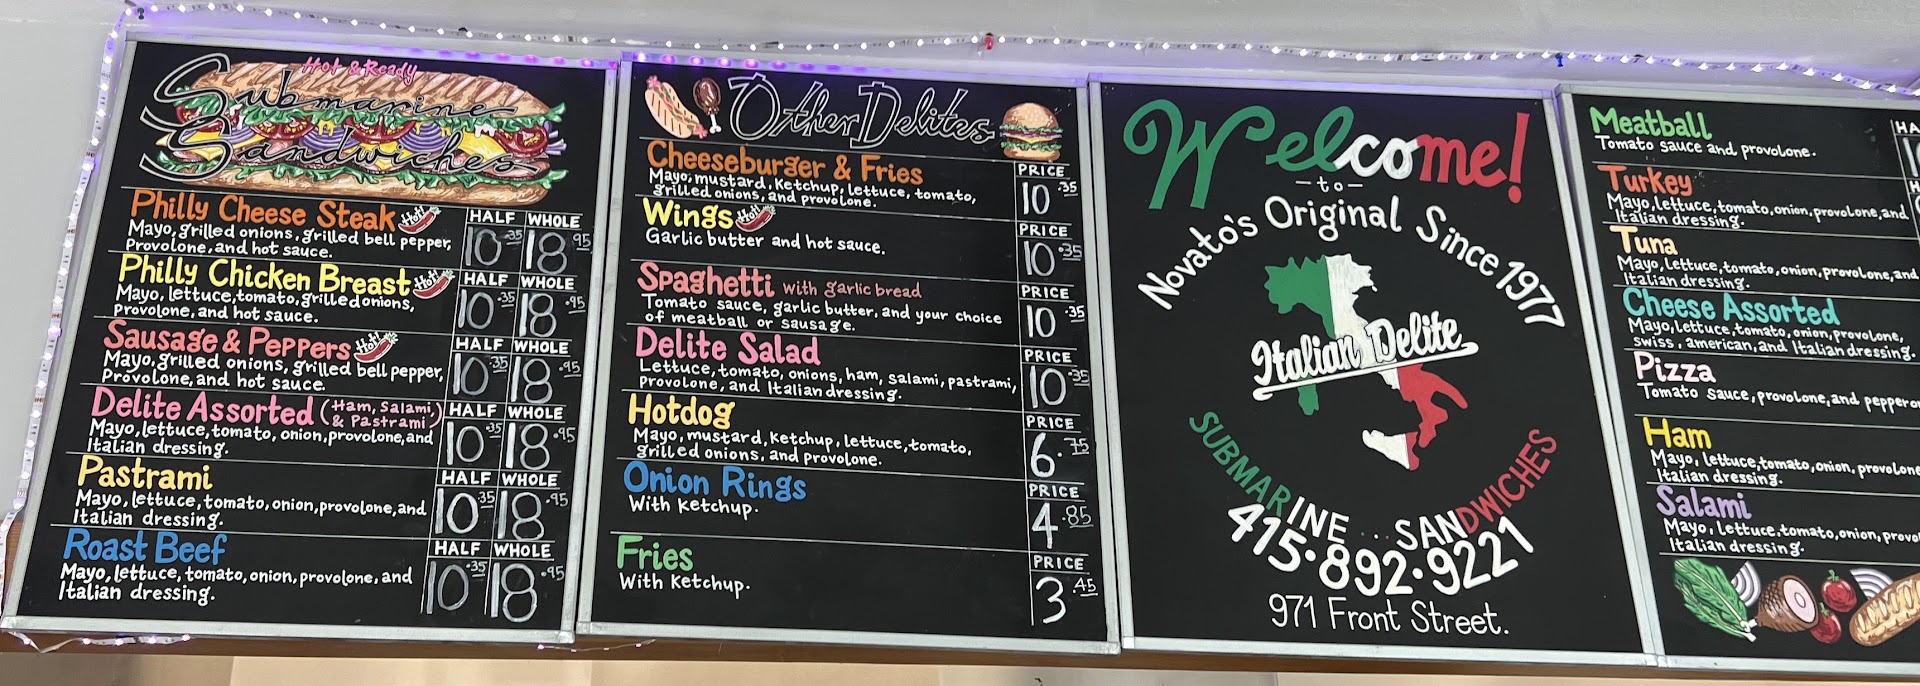 Hot & Ready
Submarine
Sandwiches
Philly Cheese Steak Hot!
HALF WHOLE
Mayo, grilled onions, grilled bell pepper,
Provolone, and hot sauce.
10.35 18.95
Philly Chicken Breast Hot!
HALF WHOLE
Mayo, lettuce, tomato, grilled onions,
Provolone, and hot sauce.
10.35 18.95
Sausage & Peppers Hot!
HALF WHOLE
Mayo, grilled onions, grilled bell pepper,
Provolone, and hot sauce.
10.35 18.95
Delite Assorted (Ham, Salami, & Pastrami)
HALF WHOLE
Mayo, lettuce, tomato, onion, provolone, and
Italian dressing.
10.35 18.95
Pastrami
HALF WHOLE
Mayo, lettuce, tomato, onion, provolone, and
Italian dressing.
10.35 18.95
Roast Beef
HALF WHOLE
Mayo, lettuce, tomato, onion, provolone, and
Italian dressing.
10.35 18.95
Other Delites
Cheeseburger & Fries
PRICE
Mayo, mustard, Ketchup, lettuce, tomato,
grilled onions, and provolone.
10.35
Wings Hot!
PRICE
Garlic butter and hot sauce.
10.35
Spaghetti with garlic bread
PRICE
Tomato sauce, garlic butter, and your choice
of meatball or sausage.
10.35
Delite Salad
PRICE
Lettuce, tomato, onions, ham, salami, pastrami,
Provolone, and Italian dressing.
10.35
Hotdog
PRICE
Mayo, mustard, ketchup, lettuce, tomato,
grilled onions, and provolone.
6.75
Onion Rings
PRICE
With Ketchup.
4.85
Fries
PRICE
With Ketchup.
3.45
Welcome!
-to-
Novato's Original Since 1977
Italian Delite
SUBMARINE...SANDWICHES
415.892.9221
971 Front Street.
Meatball
Tomato sauce and provolone.
Turkey
Mayo, lettuce, tomato, onion, provolone, and
Italian dressing.
Tuna
Mayo, lettuce, tomato, onion, provolone, and
Italian dressing.
Cheese Assorted
Mayo, lettuce, tomato, onion, provolone,
swiss, american, and Italian dressing.
Pizza
Tomato sauce, provolone, and peppero
Ham
Mayo, lettuce, tomato, onion, provolone
Italian dressing.
Salami
Mayo, lettuce, tomato, onion, provo
Italian dressing.